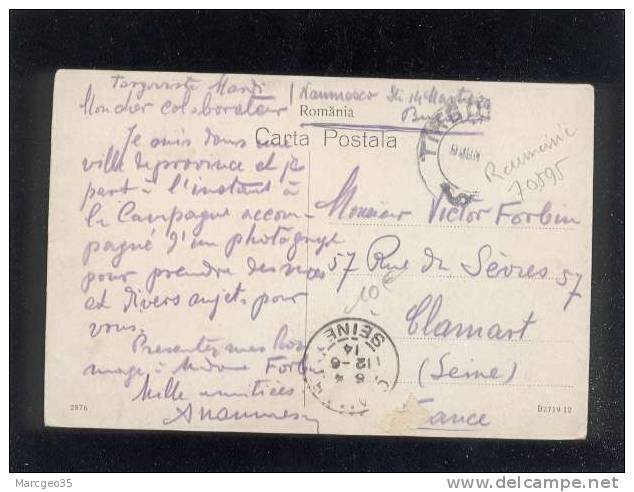 Targoviste Mardi
Moncher colaborateur
Je suis dans une
ville de province et je
part à l'instant à
la Campagne accom-
pagné d'un photographe
pour prendre des vues
et divers sujets pour
vous.
Presentez mes hom
mage à Madame Forbin
Mille amitiées
ANaumescu
2876
Naumescu Str 14
România
Carta Postala
TIMBRU
Roumanie
70595
Monsieur Victor Forbin
57 Rue de Sèvres 57
10€
Clamart
(Seine)
France
SEINE
14
12-6
D2719 12
© Marcgeo35
www.delcampe.net